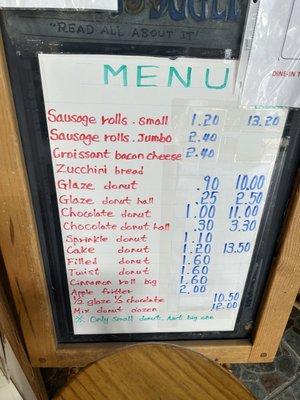 "READ ALL ABOUT IT"
DINE-IN
MENU
Sausage rolls . small 1.20 13.20
Sausage rolls . Jumbo 2.40
Croissant bacon cheese 2.40
Zucchini bread
Glaze donut .90 10.00
Glaze donut hall .25 2.50
Chocolate donut 1.00 11.00
Chocolate donut hall .30 3.30
Sprinkle donut 1.10
Cake donut 1.20 13.50
Filled donut 1.60
Twist donut 1.60
Cinnamon roll big 1.60
Apple fritter 2.00
½ glaze ½ chocolate 10.50
Mix donut dozen 12.00
Only Small donut. Not big one